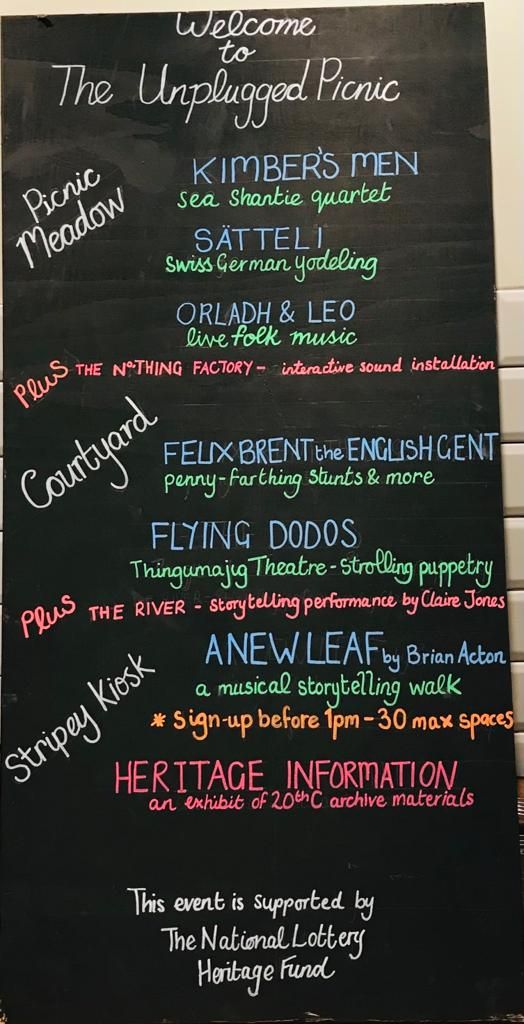 Welcome
to
The Unplugged Picnic
Picnic
Meadow
KIMBER'S MEN
Sea Shantie quartet
SÄTTELI
Swiss German yodeling
ORLADH & LEO
live folk music
Plus THE NOTHING FACTORY - interactive sound installation
Courtyard
FELIX BRENT the ENGLISH GENT
penny-farthing Stunts & more
FLYING DODOS
Thingumajig Theatre - Strolling puppetry
Plus THE RIVER - Storytelling performance by Claire Jones
Stripey Kiosk
A NEW LEAF by Brian Acton
a musical storytelling walk
* Sign-up before 1pm - 30 max spaces
HERITAGE INFORMATION
an exhibit of 20thC archive materials
This event is supported by
The National Lottery
Heritage Fund